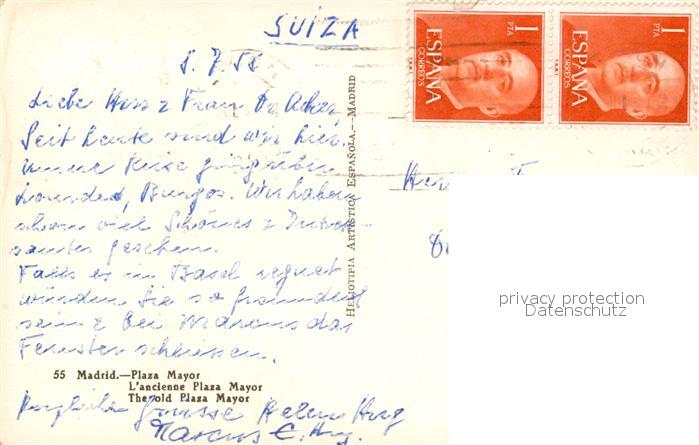 SUIZA
Liebe Herr & Frau Dr.
Seit heute sind wir hier.
unsere Reise ging über
Burgos. Wir haben
schon viel Schönes & Inter-
santes gesehen.
Falls es in Basel regnet
würden Sie so freundlich
sein & bei Marcus das
Fenster schliessen.
55 Madrid.—Plaza Mayor
L'ancienne Plaza Mayor
The old Plaza Mayor
Herzliche Grüsse Helen Hug
Marcus C. Hug.
HELIOTIPIA ARTISTICA ESPAÑOLA.—MADRID
1 PTA
ESPAÑA
CORREOS
1 PTA
ESPAÑA
CORREOS
privacy protection
Datenschutz